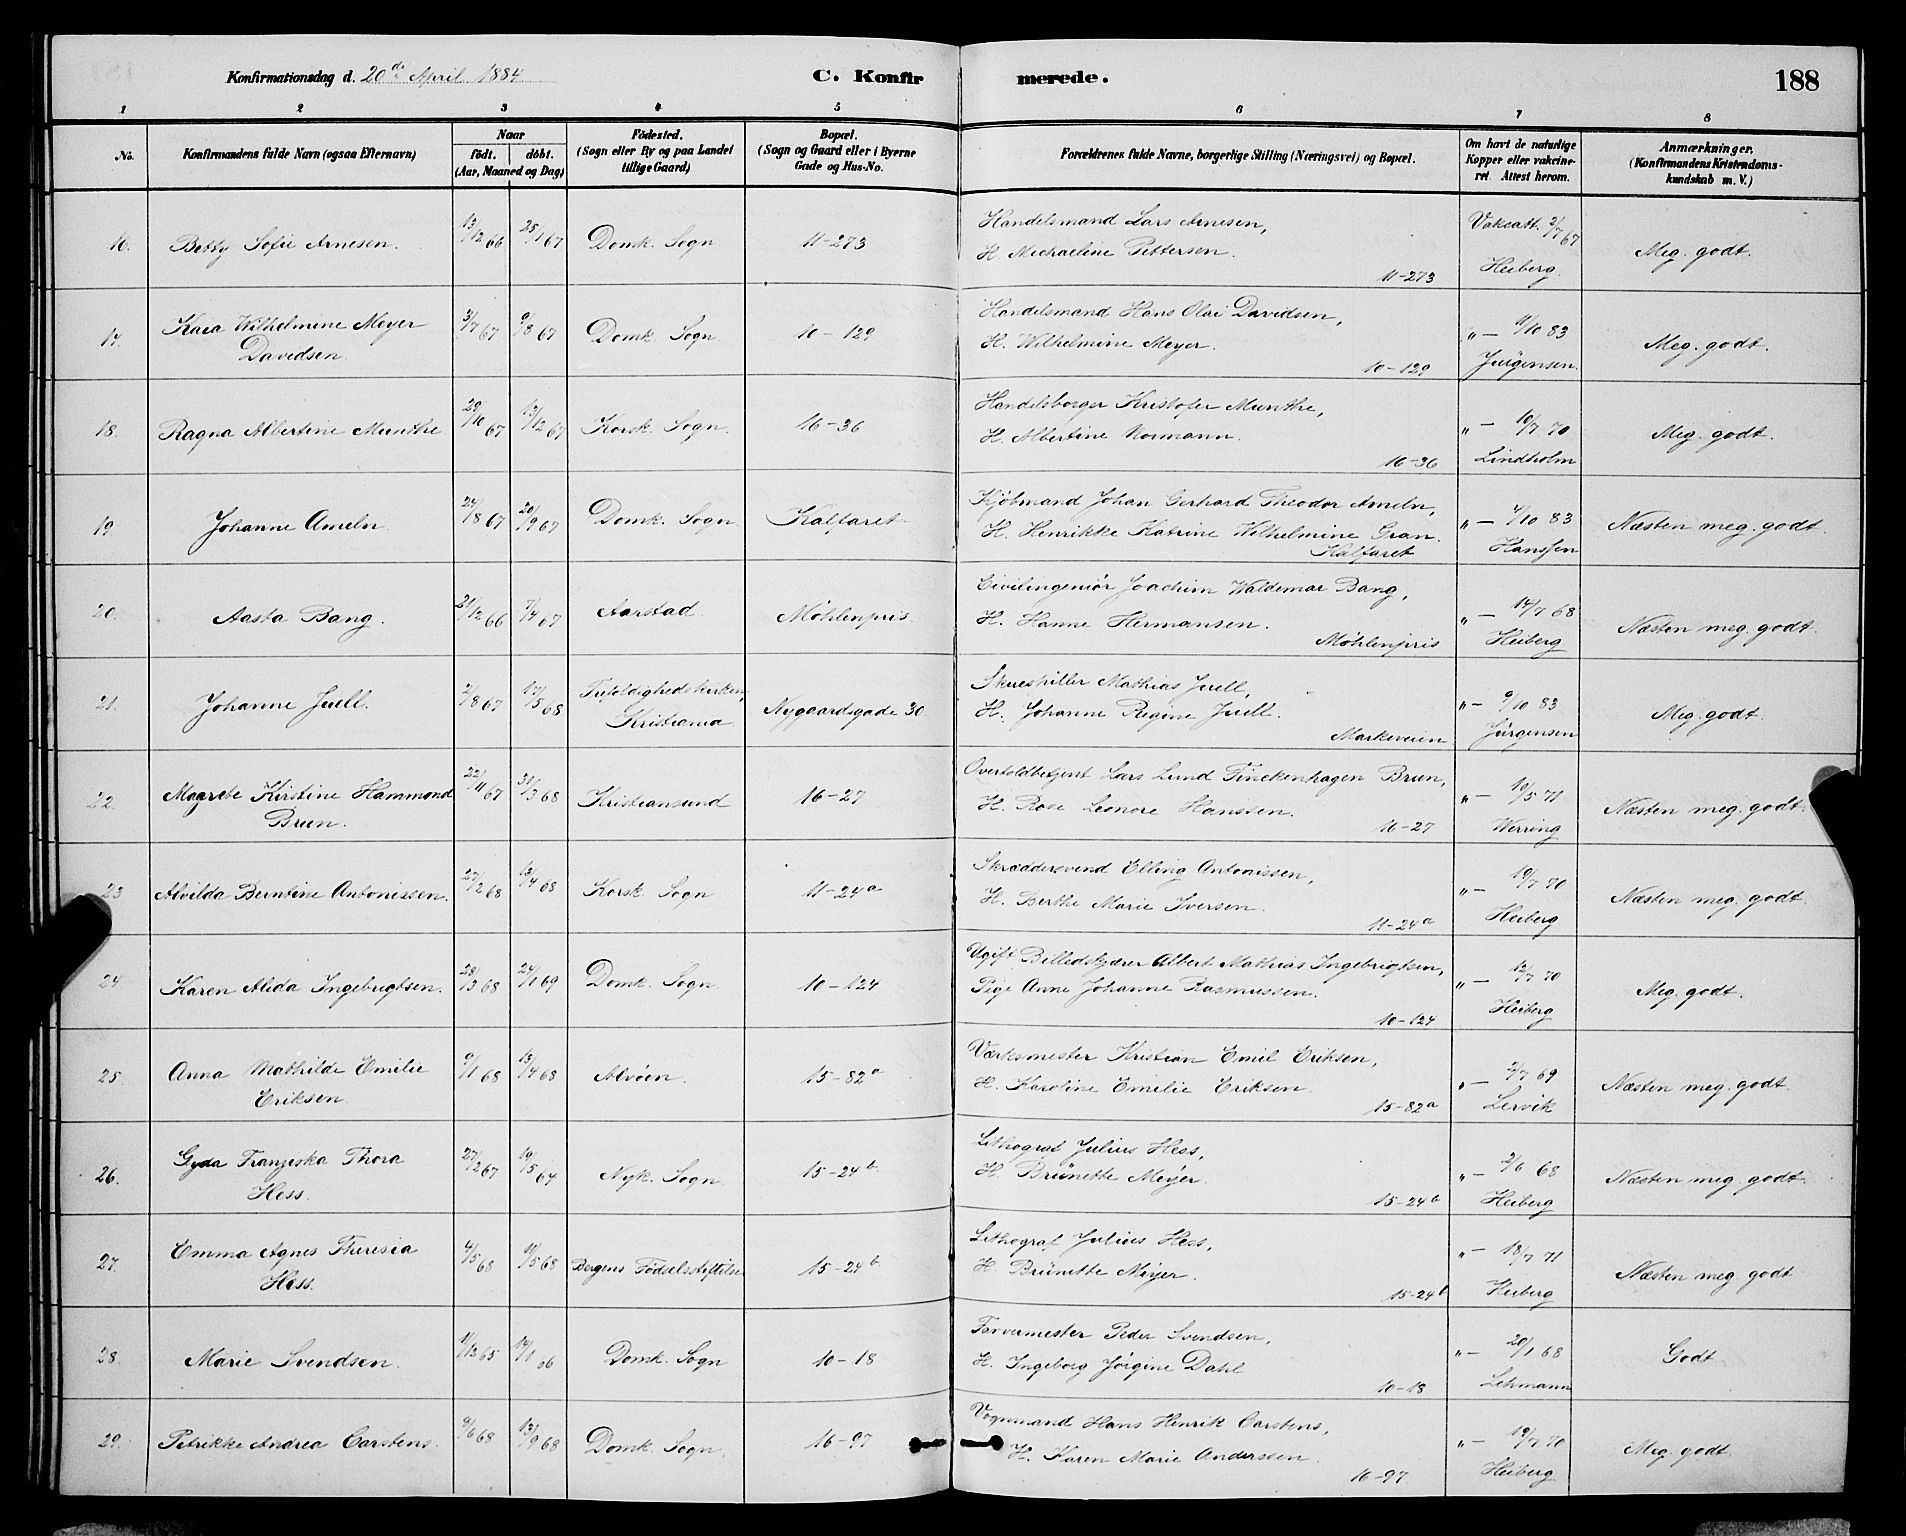 Konfirmationsdag d. 20de April 1884
C. Konfirmerede.
188
1 2 3 4 5 6 7 8
No.
Konfirmandens fulde Navn (ogsaa Efternavn)
Naar
födt. döbt.
(Aar, Maaned og Dag)
Födested.
(Sogn eller By og paa Landet
tillige Gaard)
Bopæl.
(Sogn og Gaard eller i Byerne
Gade og Hus-No.
Forældrenes fulde Navne, borgerlige Stilling (Næringsvei) og Bopæl.
Om havt de naturlige
Kopper eller vakcine-
ret. Attest herom.
Anmærkninger.
(Konfirmandens Kristendoms-
kundskab m. V.)
16. Betty Sofie Arnesen. 13/12 66 25/1 67 Domk. Sogn 11-273
Handelsmand Lars Arnesen,
H. Michaeline Pettersen.
11-273
Vakcatt. 2/7 67
Heiberg.
Meg. godt.
17. Kaia Wilhelmine Meyer
Davidsen. 3/7 67 9/8 67 Domk. Sogn 10-129
Handelsmand Hans Olai Davidsen,
H. Wilhelmine Meyer.
10-129
„ — 11/10 83
Jürgensen.
Meg. godt.
18. Ragna Albertine Munthe 29/10 67 13/12 67 Korsk. Sogn. 16-36
Handelsborger Kristofer Munthe,
H. Albertine Normann.
16-36
„ — 19/7 70
Lindholm
Meg. godt.
19 Johanne Ameln. 24/8 67 20/9 67 Domk. Sogn Kalfaret
Kjöbmand Johan Gerhard Theodor Ameln,
H. Henrikke Katrine Wilhelmine Gran.
Kalfaret
„ — 4/10 83
Hanssen
Næsten meg. godt.
20. Aasta Bang. 21/12 66 7/4 67 Aarstad. Möhlenpris.
Civilingeniör Joachim Waldemar Bang,
H. Hanne Hermansen.
Möhlenpris
„ — 14/7 68
Heiberg
Næsten meg. godt.
21. Johanne Juell. 2/8 67 17/5 68 Trefoldighedskirken,
Kristiania Nygaardsgade 30.
Skuespiller Mathias Juell,
H. Johanne Regine Juell.
Markeveien
„ — 9/10 83
Jürgensen
Meg. godt.
22. Magrete Kirstine Hammond
Brun. 22/11 67 31/3 68 Kristiansund 16-27
Overtoldbetjent Lars Lund Finckenhagen Brun,
H. Rose Leonore Hanssen.
16-27
„ — 10/5 71
Werring
Næsten meg. godt.
23 Alvilda Berntine Antonissen. 27/2 68 13/4 68 Korsk. Sogn 11-24a
Skræddersvend Elling Antonissen,
H. Berthe Marie Iversen.
11-24a
„ — 19/7 70
Heiberg
Næsten meg. godt.
24 Karen Alida Ingebrigtsen. 28/3 68 24/1 69 Domk. Sogn 10-124
Ugift Billedskjærer Albert Mathias Ingebrigtsen,
Pige Anne Johanne Rasmussen.
10-124
„ — 12/7 70
Heiberg
Meg. godt.
25. Anna Mathilde Emilie
Eriksen. 9/1 68 13/4 68 Alvöen. 15-82a
Værksmester Kristian Emil Eriksen,
H. Karoline Emilie Eriksen.
15-82a
„ — 2/7 69
Lervik
Næsten meg. godt.
26. Gyda Franziska Thora
Hess. 27/2 67 19/5 67 Nyk. Sogn. 15-24b.
Lithograf Julius Hess,
H. Brünette Meyer.
15-24b
„ — 2/6 68
Heiberg
Næsten meg. godt.
27. Emma Agnes Theresia
Hess. 4/5 68 10/5 68 Bergens Födselsstiftelse 15-24b.
Lithograf Julius Hess,
H. Brünette Meyer.
15-24b
„ — 18/7 71
Heiberg
Næsten meg. godt
28. Marie Svendsen. 11/12 65 14/1 66 Domk. Sogn 10-18
Farvermester Peder Svendsen,
H. Ingeborg Jörgine Dahl
10-18
„ — 20/1 68
Lehmann
Godt
29. Petrikke Andrea Carstens. 9/6 68 13/9 68 Domk. Sogn. 16-97
Vognmand Hans Henrik Carstens,
H. Karen Marie Anderssen.
16-97
„ — 19/7 70
Heiberg
Meg. godt.